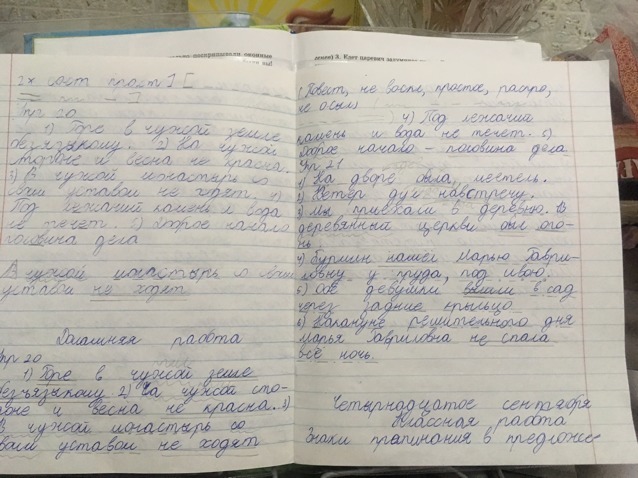 2х сост прост ] [
Упр 20
1) Горе в чужой земле
безъязыкому. 2) На чужой
стороне и весна не красна.
3) В чужой монастырь со
своим уставом не ходят. 4)
Под лежачий камень и вода
не течет. 5) Доброе начало
половина дела
В чужой монастырь с своим
уставом не ходят
Домашняя работа
Упр 20
1) Горе в чужой земле
безъязыкому 2) На чужой сто-
роне и весна не красна. 3)
В чужой монастырь со
своим уставом не ходят
(Повест, не воскл, простое, распро,
не осл)
4) Под лежачий
камень и вода не течет. 5)
Доброе начало - половина дела
Упр 21
1) На дворе была, метель.
2) Ветер дул навстречу.
3) Мы приехали в деревню. В
деревянный церкви был ого-
нь
4) Бурмин нашёл Марью Гаври-
ловну у пруда, под ивою.
5) Обе девушки вышли в сад
через заднее крыльцо
6) Накануне решительного дня
Марья Гавриловна не спала
всё ночь.
Четырнадцатое сентября
Классная работа
Знаки препинания в предложе